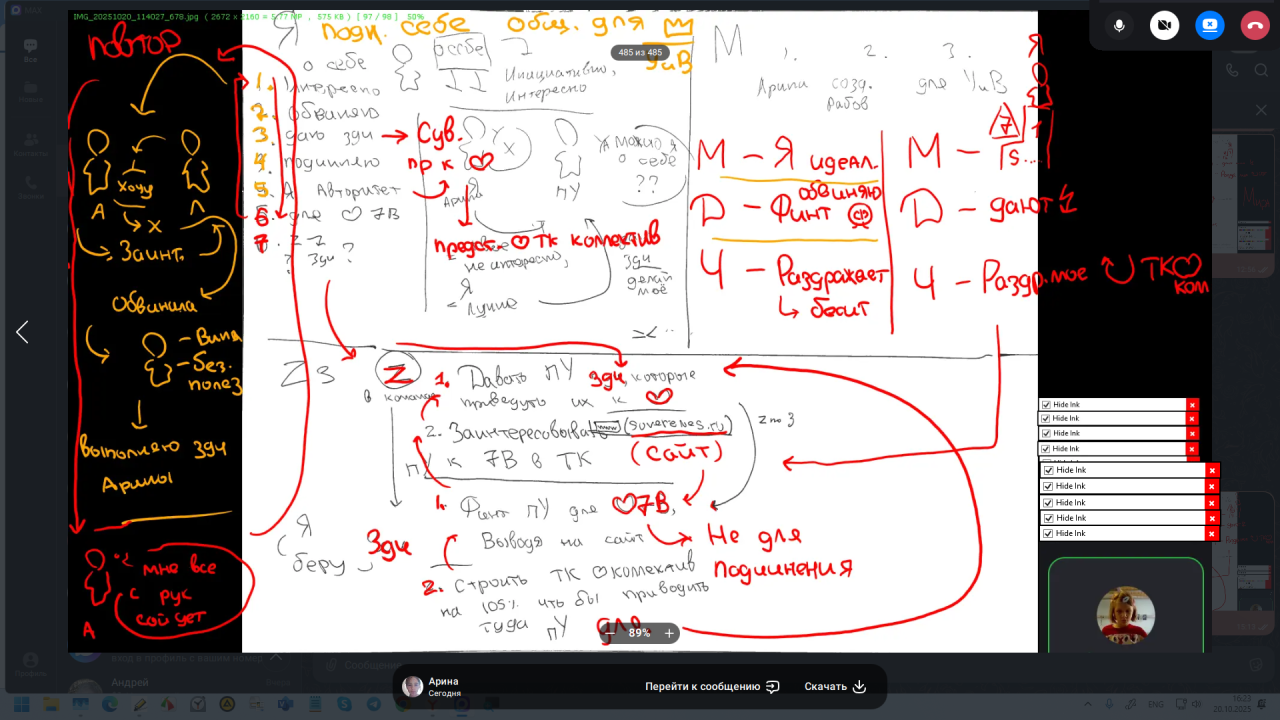 IMG_20251020_114027_678.jpg ( 2672 x 2160 = 5.77 MP , 575 KB ) [ 97 / 98 ] 50%
MAX
Все
485 из 485
повтор
Я
подч. себе общ. для
о себе
о себе
УиВ
1. Интересно
2. обвиняю
3. даю зди
4. подчиняю
5. Я Авторитет
6 для 7В
7
? зди ?
Инициативно,
Интересно
Сув.
пр к
Я
Арина
ПУ
можно я
о себе
??
предст. ТК коллектив
не интересно,
Я
лучше
зди
делай
моё
М
1. 2. 3.
Арина созд. для УиВ
рабов
Я
М – Я идеал.
обвиняю
Д – Финт
Ч – Раздражает
бесит
М –
Д – дают
Ч – Раздр. мое ТК
ком
Хочу
А
х
Заинт.
Обвинила
– Вина
– без.
полез
выполняю зди
Арины
мне все
с рук
сойдет
А
Z3
Z
в команде
1. Давать ПУ зди, которые
приведут их к
2. Заинтересовывать www (suverenes.ru)
ПУ к 7В в ТК (сайт)
Z по 3
1. Финт ПУ для 7В,
Выводя на сайт
Не для
подчинения
Я
беру
Зди
2. Строить ТК коллектив
на 105% что бы приводить
туда ПУ для
89%
Hide Ink
Hide Ink
Hide Ink
Hide Ink
Hide Ink
Hide Ink
Hide Ink
Hide Ink
Hide Ink
вход в профиль с вашим номером
Андрей
Сообщение
Профиль
Арина
Сегодня
Перейти к сообщению
Скачать
ENG
16:23
20.10.2025